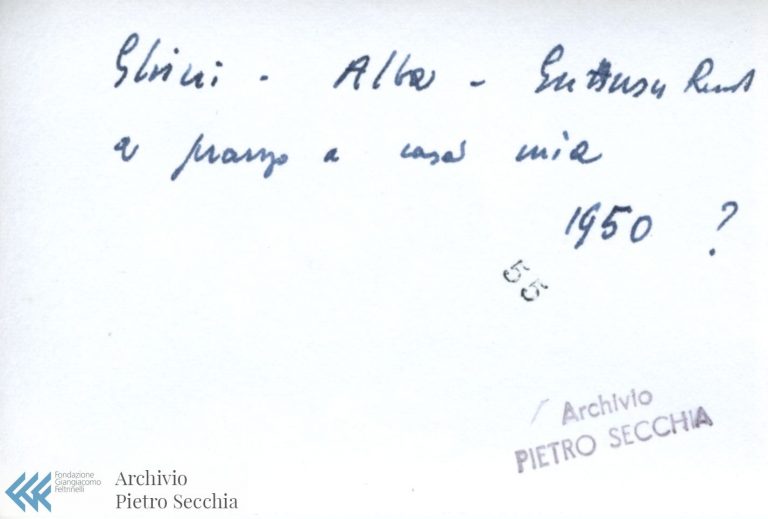 Ghini - Alba - Guttuso
a pranzo a casa mia
1950 ?
55
Archivio
PIETRO SECCHIA
Fondazione
Giangiacomo
Feltrinelli
Archivio
Pietro Secchia